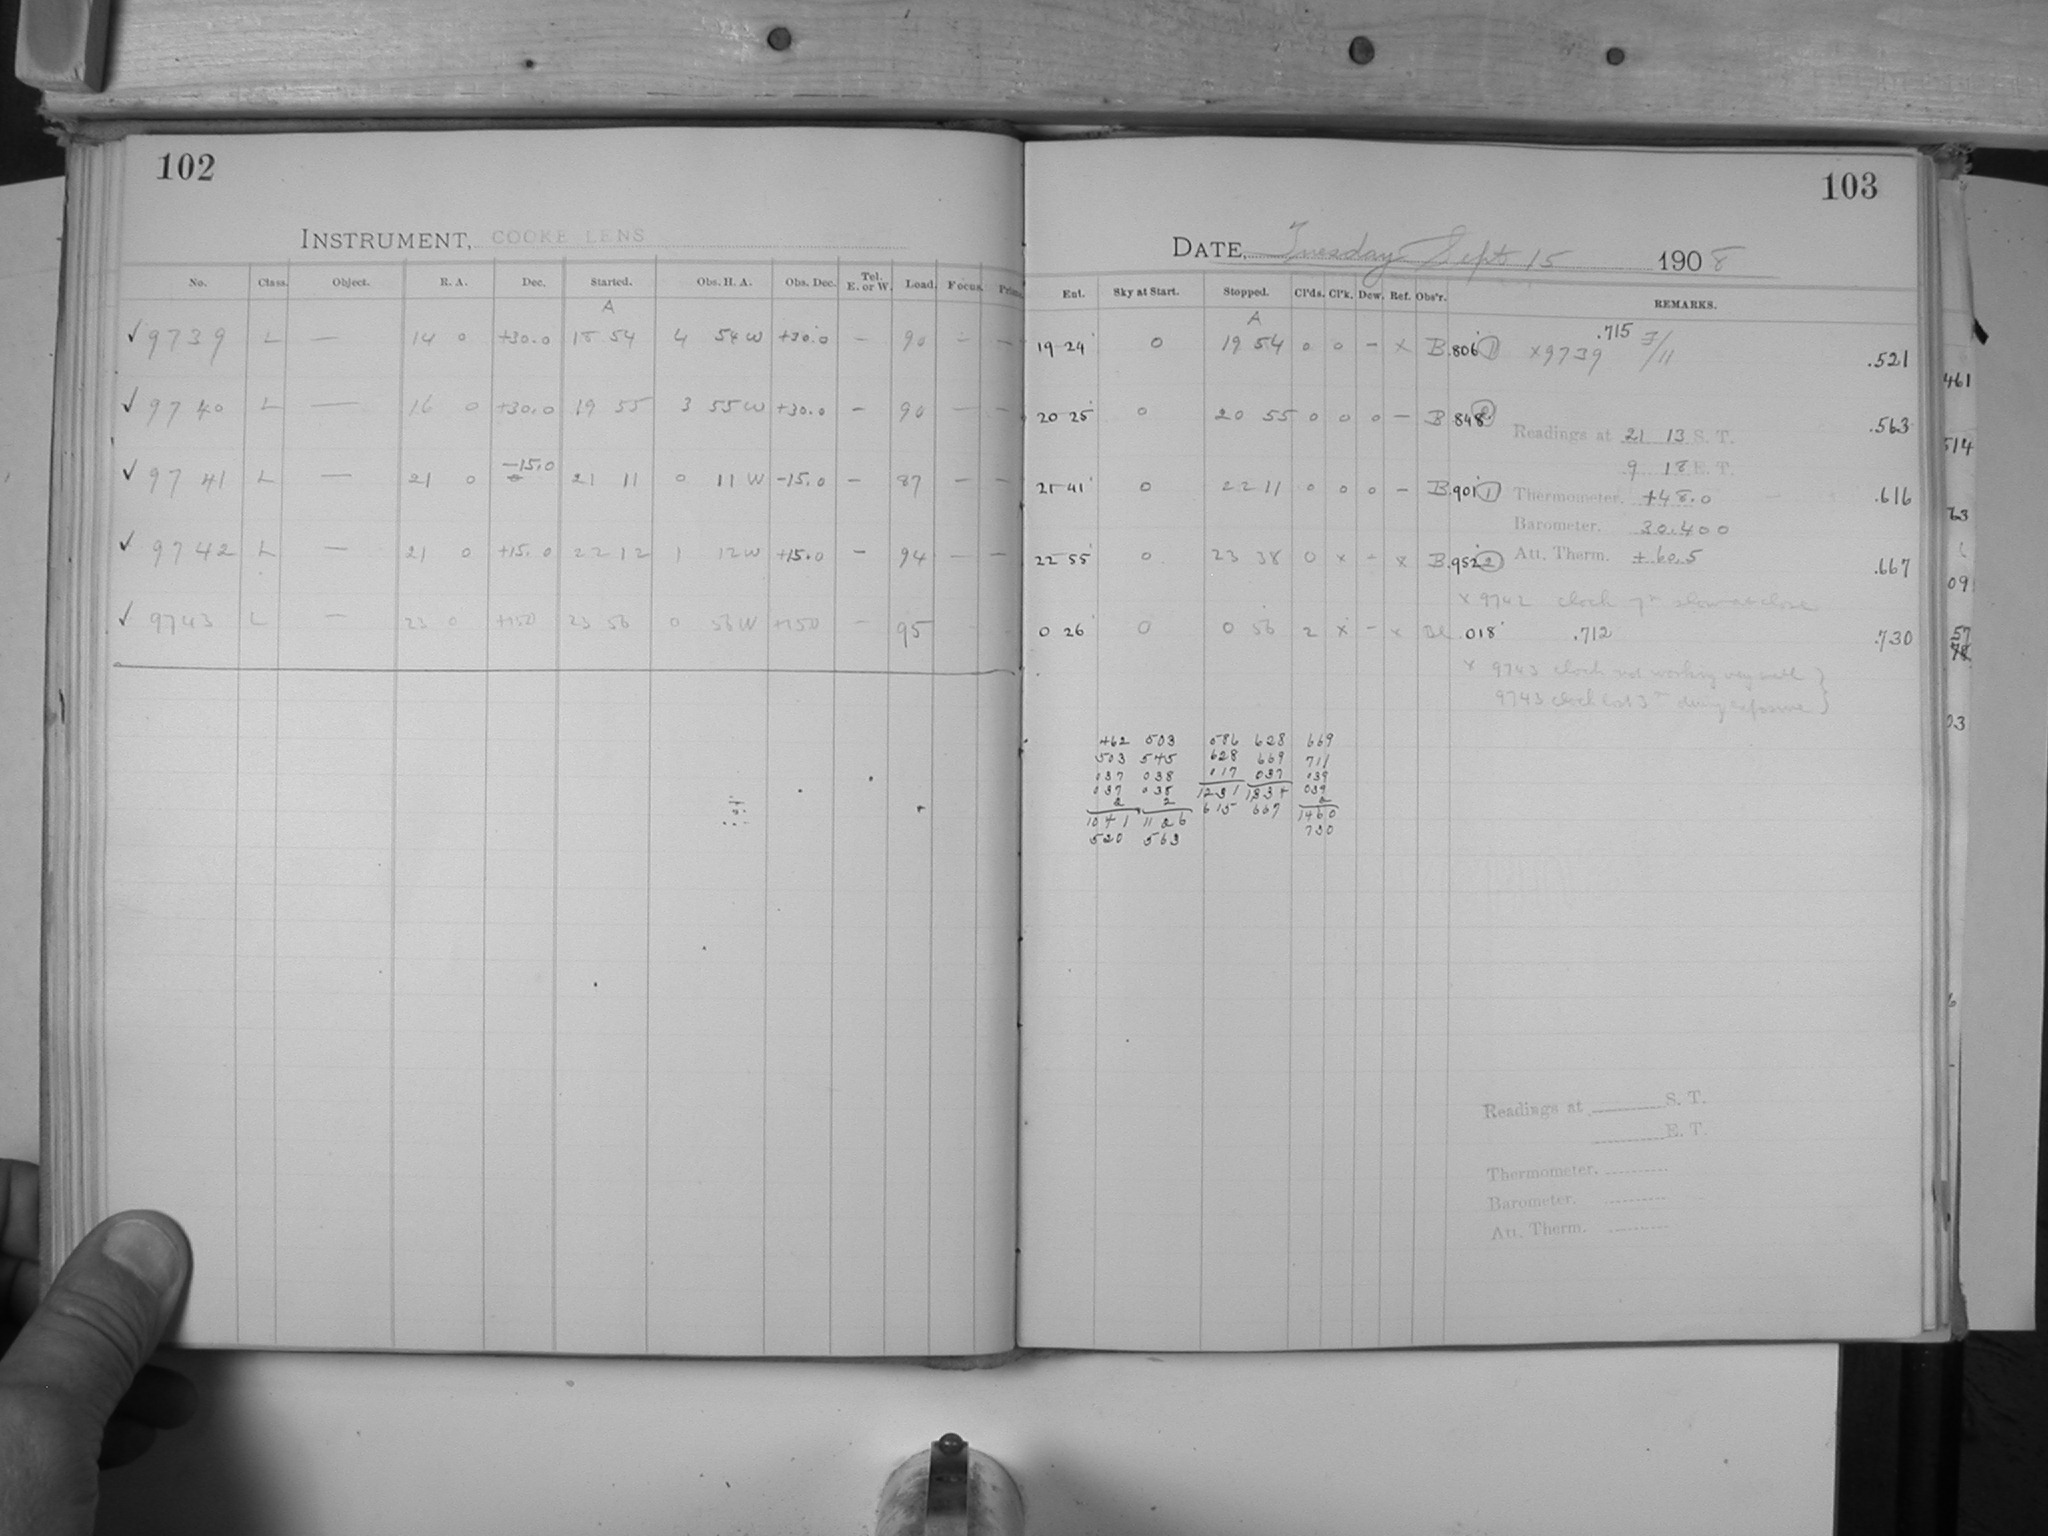 102
INSTRUMENT, COOKE LENS
No. Class. Object. R. A. Dec. Started. Obs. H. A. Obs. Dec. Tel. E. or W. Load. Focus. Prism.
A
✓ 9739 L — 14 0 +30.0 18 54 4 54 W +30.0 — 90 — —
✓ 9740 L — 16 0 +30.0 19 55 3 55 W +30.0 — 90 — —
✓ 9741 L — 21 0 −15.0 21 11 0 11 W −15.0 — 87 — —
✓ 9742 L — 21 0 +15.0 22 12 1 12 W +15.0 — 94 — —
✓ 9743 L — 23 0 +150 23 56 0 56 W +150 — 95 — —
103
DATE, Tuesday Sept 15 1908
Ent. Sky at Start. Stopped. Cl'ds. Cl'k. Dew. Ref. Obs'r. REMARKS.
A
19 24 0 19 54 0 0 — x B .806 1 x 9739 .715 7/11 .521
20 25 0 20 55 0 0 0 — B 848 2 .563
Readings at 21 13 S. T.
9 18 E. T.
21 41 0 22 11 0 0 0 — B .901 1 Thermometer. +48.0 .616
Barometer. 30.400
22 55 0 23 38 0 x — x B .952 2 Att. Therm. +60.5 .667
x 9742 clock 7m slow at close
0 26 0 0 56 2 x — x Bl .018 .712 .730
x 9743 clock not working very well }
9743 clock lost 3m during exposure }
462 503 586 628 669
503 545 628 669 711
037 038 017 037 039
037 038 1231 1334 039
2 2 615 667 2
1041 1126 1460
520 563 730
Readings at S. T.
E. T.
Thermometer.
Barometer.
Att. Therm.
461
514
63
09
57
03